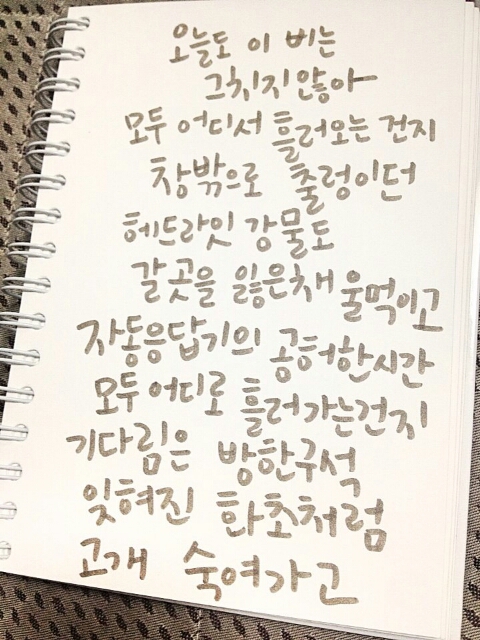 오늘도 이 비는
그치지 않아
모두 어디서 흘러오는 건지
창밖으로 출렁이던
헤드라잇 강물도
갈 곳을 잃은채 울먹이고
자동응답기의 공허한 시간
모두 어디로 흘러가는건지
기다림은 방한구석
잊혀진 화초처럼
고개 숙여가고